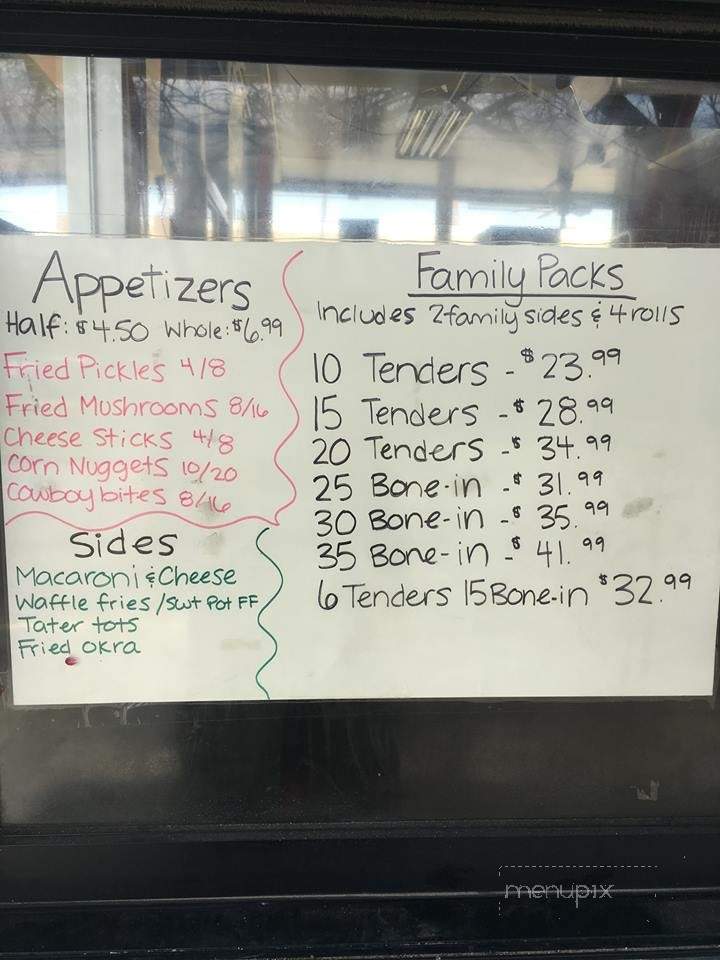 Appetizers
Half: $4.50 Whole: $6.99
Fried Pickles 4/8
Fried Mushrooms 8/16
Cheese Sticks 4/8
Corn Nuggets 10/20
Cowboy bites 8/16
Sides
Macaroni & Cheese
Waffle fries / Swt Pot FF
Tater tots
Fried okra
Family Packs
Includes 2 family sides & 4 rolls
10 Tenders - $23.99
15 Tenders - $28.99
20 Tenders - $34.99
25 Bone-in - $31.99
30 Bone-in - $35.99
35 Bone-in - $41.99
6 Tenders 15 Bone-in $32.99
menupix